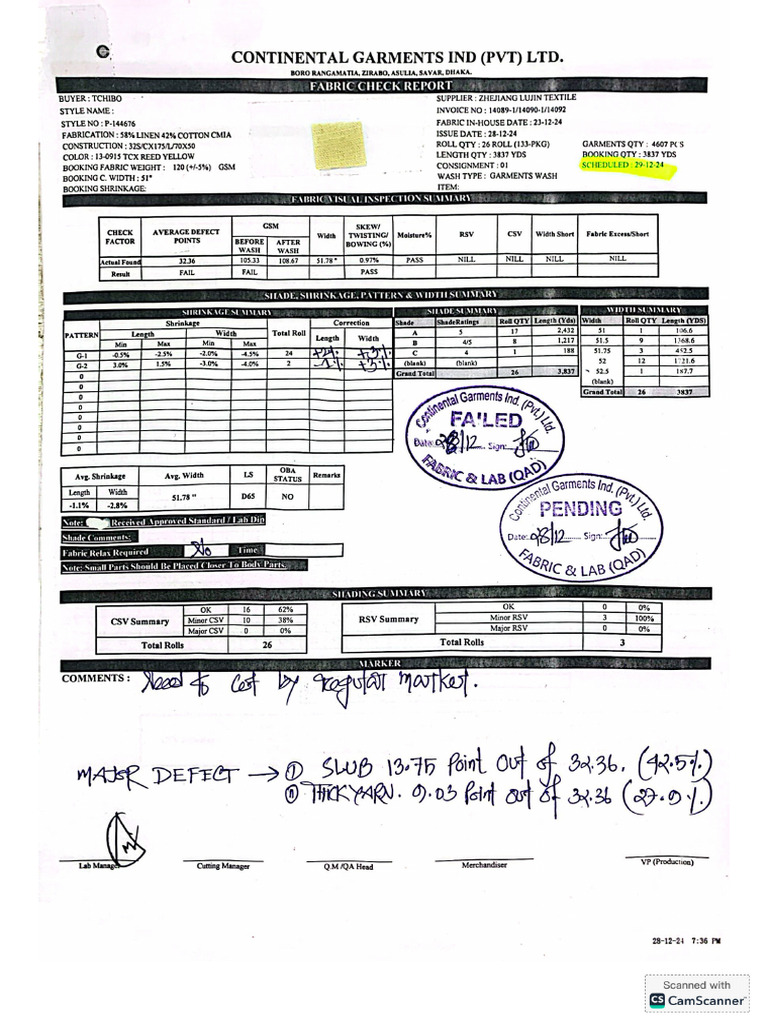 CONTINENTAL GARMENTS IND (PVT) LTD.
BORO RANGAMATIA, ZIRABO, ASULIA, SAVAR, DHAKA.
FABRIC CHECK REPORT
BUYER : TCHIBO
STYLE NAME :
STYLE NO : P-144676
FABRICATION : 58% LINEN 42% COTTON CMIA
CONSTRUCTION : 32S/CX17S/L/70X50
COLOR : 13-0915 TCX REED YELLOW
BOOKING FABRIC WEIGHT : 120 (+/-5%) GSM
BOOKING C. WIDTH : 51"
BOOKING SHRINKAGE:
SUPPLIER : ZHEJIANG LUJIN TEXTILE
INVOICE NO : 14089-1/14090-1/14092
FABRIC IN-HOUSE DATE : 23-12-24
ISSUE DATE : 28-12-24
ROLL QTY : 26 ROLL (133-PKG) GARMENTS QTY : 4607 PCS
LENGTH QTY : 3837 YDS BOOKING QTY : 3837 YDS
CONSIGNMENT : 01 SCHEDULED : 29-12-24
WASH TYPE : GARMENTS WASH
ITEM:
FABRIC VISUAL INSPECTION SUMMARY
CHECK FACTOR AVERAGE DEFECT POINTS GSM BEFORE WASH AFTER WASH Width SKEW/ TWISTING/ BOWING (%) Moisture% RSV CSV Width Short Fabric Excess/Short
Actual Found 32.36 105.33 108.67 51.78 " 0.97% PASS NILL NILL NILL NILL
Result FAIL FAIL PASS
SHADE, SHRINKAGE, PATTERN & WIDTH SUMMARY
SHRINKAGE SUMMARY
PATTERN Shrinkage Total Roll Correction
Length Width Length Width
Min Max Min Max
G-1 -0.5% -2.5% -2.0% -4.5% 24 +2% +3%
G-2 3.0% 1.5% -3.0% -4.0% 2 +3%
0
0
0
0
0
0
0
SHADE SUMMARY
Shade ShadeRatings Roll QTY Length (Yds)
A 5 17 2,432
B 4/5 8 1,217
C 4 1 188
(blank) (blank)
Grand Total 26 3,837
WIDTH SUMMARY
Width Roll QTY Length (YDS)
51 1 106.6
51.5 9 1368.6
51.75 3 452.5
52 12 1721.6
52.5 1 187.7
(blank)
Grand Total 26 3837
Continental Garments Ind. (Pvt.) Ltd.
FAILED
Date: 28/12 Sign:
FABRIC & LAB (QAD)
Continental Garments Ind. (Pvt.) Ltd.
PENDING
Date: 28/12 Sign:
FABRIC & LAB (QAD)
Avg. Shrinkage Avg. Width LS OBA STATUS Remarks
Length Width
-1.1% -2.8% 51.78 " D65 NO
Note: Received Approved Standard / Lab Dip
Shade Comments:
Fabric Relax Required No Time
Note: Small Parts Should Be Placed Closer To Body Parts.
SHADING SUMMARY
CSV Summary OK 16 62%
Minor CSV 10 38%
Major CSV 0 0%
Total Rolls 26
RSV Summary OK 0 0%
Minor RSV 3 100%
Major RSV 0 0%
Total Rolls 3
MARKER
COMMENTS : Need to cut by regular marker.
MAJOR DEFECT → ① SLUB 13.75 Point Out of 32.36. (42.5%)
⑪ THICK YARN. 9.03 Point out of 32.36 (27.9%)
Lab Manager
Cutting Manager
Q.M /QA Head
Merchandiser
VP (Production)
28-12-24 7:36 PM
Scanned with
CS CamScanner